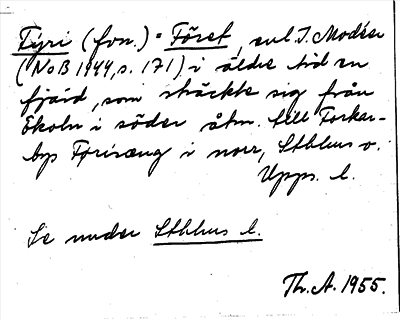 Fyri (fvn.) = Föret, enl. I. Modéer
(NoB 1944, s. 171) i äldre tid en
fjärd, som sträckte sig från
Ekoln i söder åtm. till Forkar-
by i norr, Sthlms o.
Upps. l.
Se under Sthlms l.
Th. A. 1955.